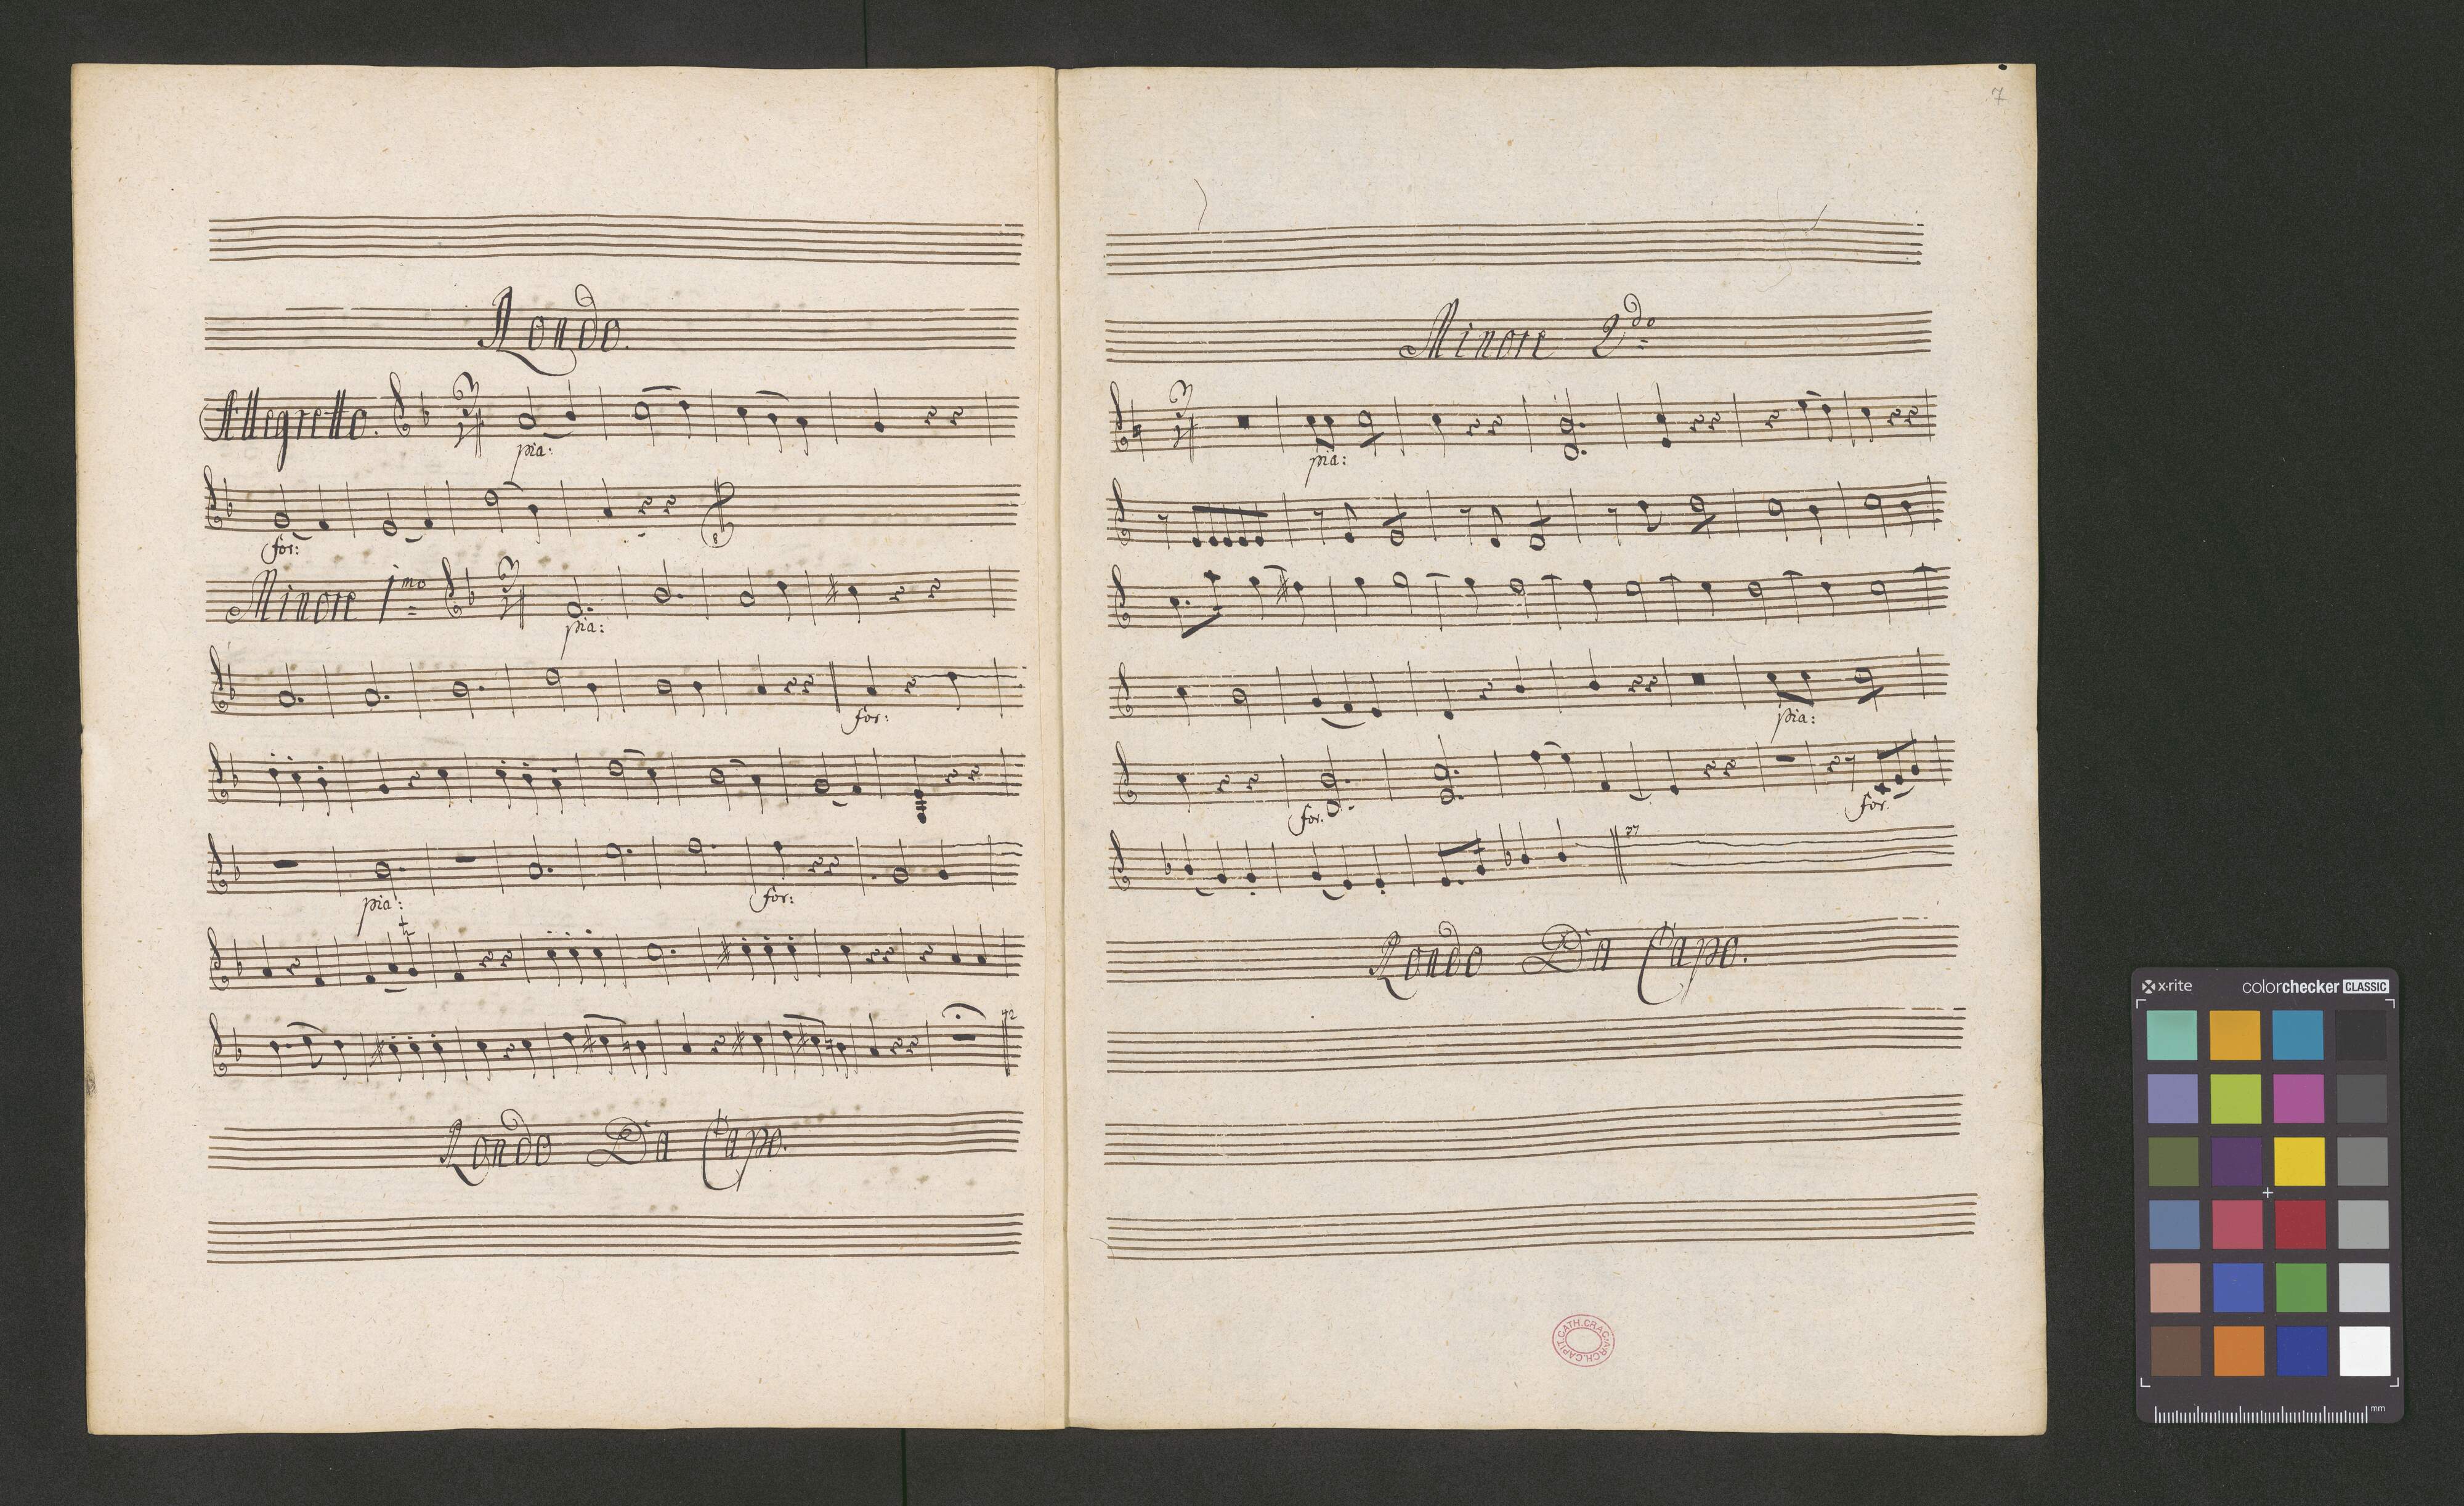 Rondo.
Allegretto.
pia:
for:
Minore 1mo
pia:
for:
pia:
for:
tr
72
Rondo Da Capo.
7
Minore 2do
pia:
pia:
for.
for.
Rondo Da Capo.
ARCH.CAPIT.CATH.CRAC.
x-rite colorchecker CLASSIC
mm